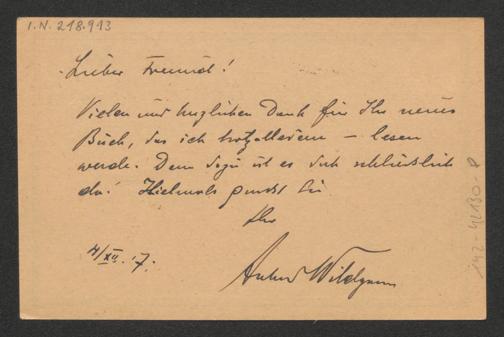 I.N. 218.913
Lieber Freund!
Vielen und herzlichen Dank für Ihr neues
Buch, das ich trotzalledem – lesen
werde. Denn dazu ist es doch schließlich
da! Vielmals grüßt Sie
Ihr
4/XII. 17.
Anton Wildgans